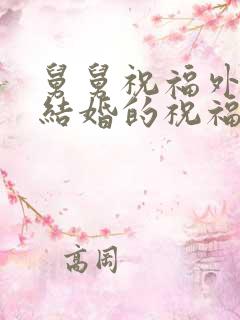 舅舅祝福外
結婚的祝福
高周